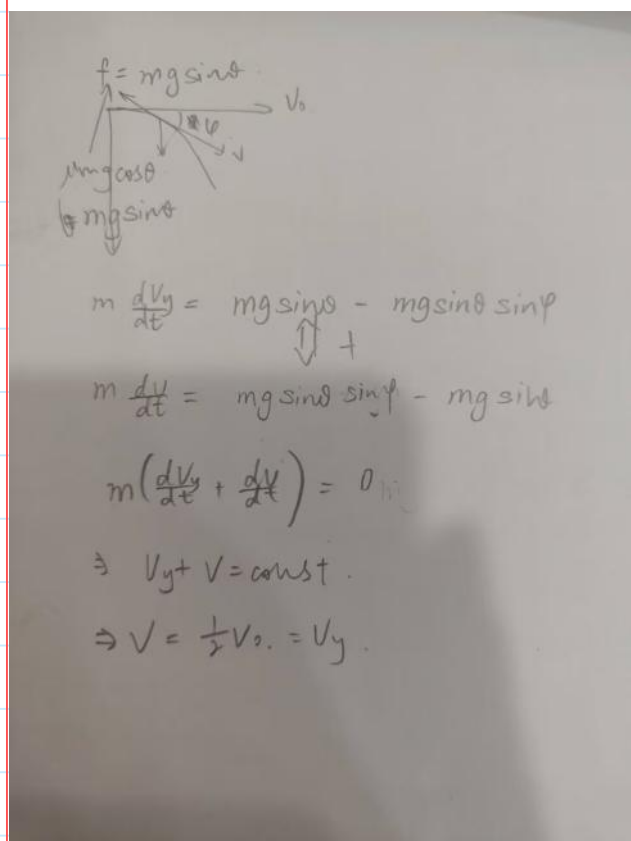 f = mg sinθ
V₀
φ
V
μmg cosθ
mg sinθ
m dVy/dt = mg sinθ - mg sinθ sinφ
⇕ +
m dV/dt = mg sinθ sinφ - mg sinθ
m(dVy/dt + dV/dt) = 0
⇒ Vy + V = const.
⇒ V = 1/2 V₀. = Vy.